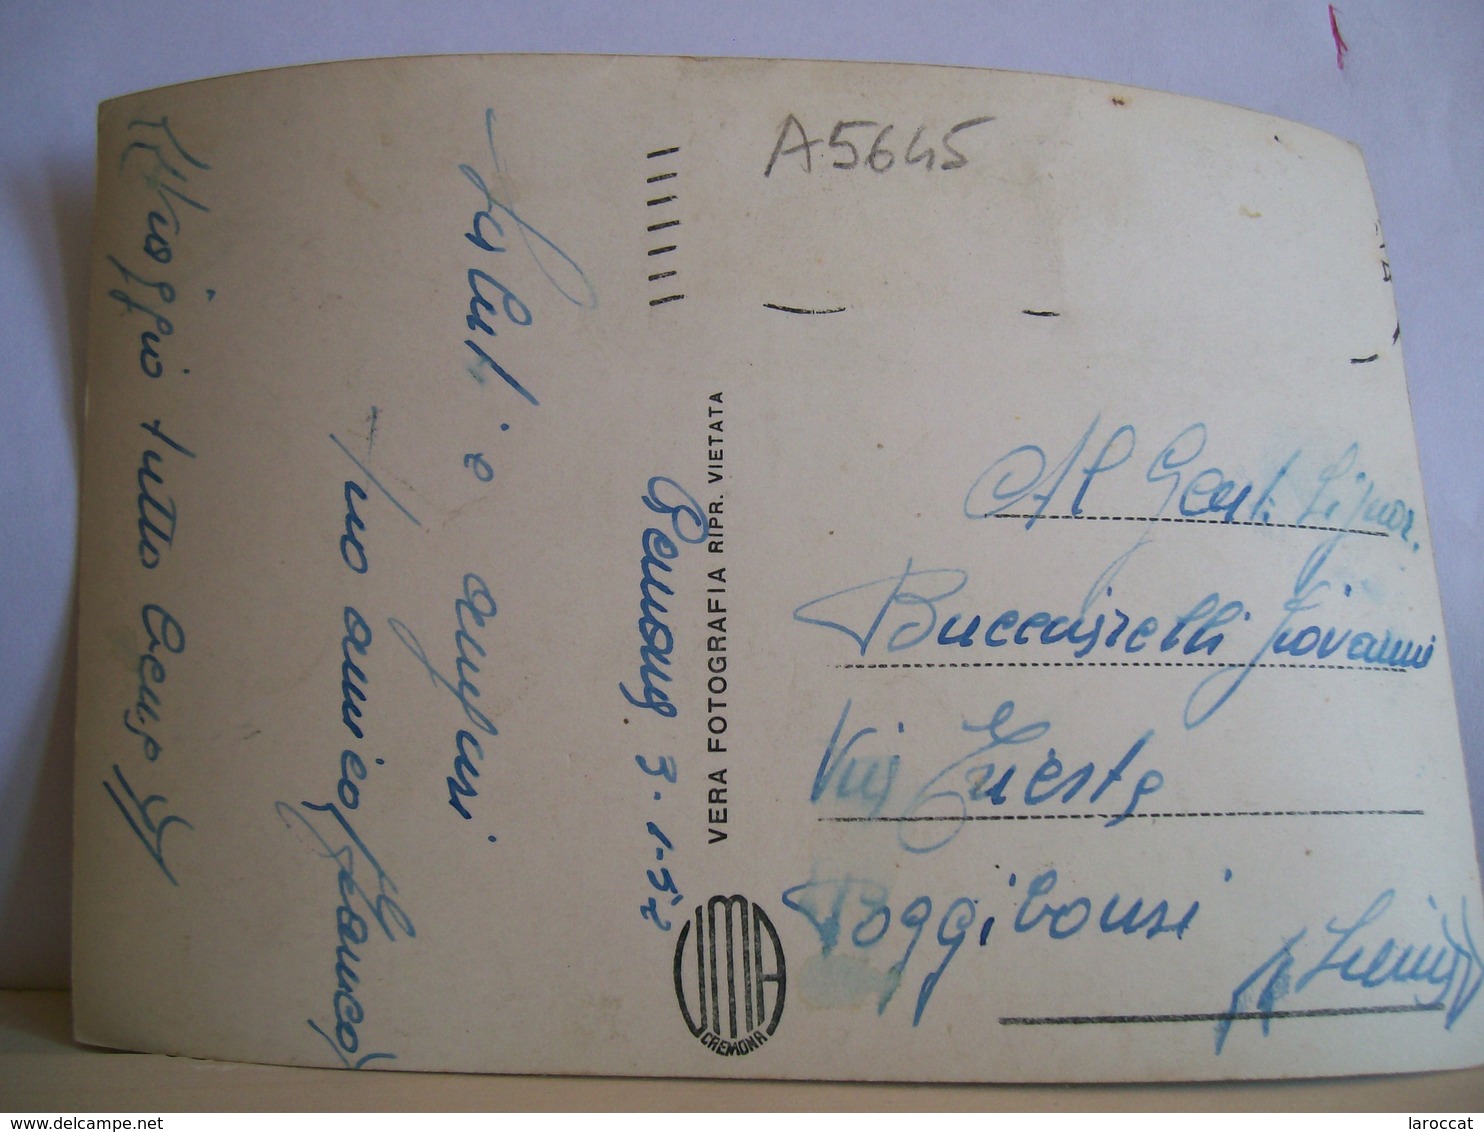 A5645
Saluti e auguroni
tuo amico Franco
(Viaggio tutto bene)
3-1-52
VERA FOTOGRAFIA RIPR. VIETATA
CREMONA
Al Gent. Signor.
Buccianelli Giovanni
Via Trieste
Poggibonsi
(Siena)
delcampe.net
laroccat